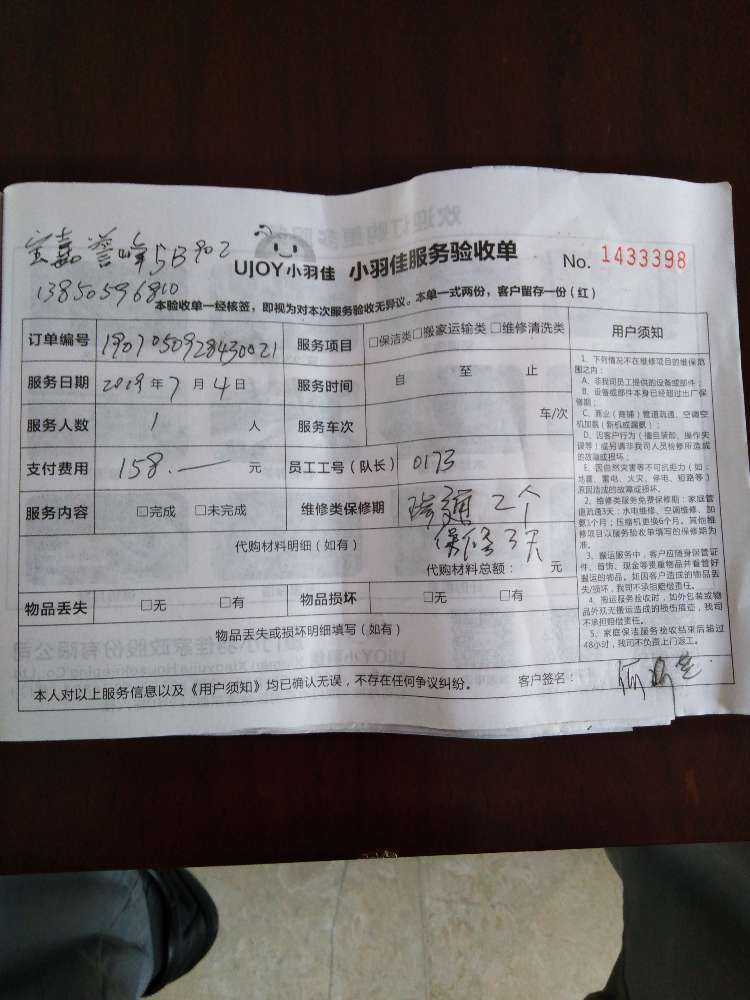 宝嘉誉峰5B902
13850596810
UJOY小羽佳 小羽佳服务验收单 No. 1433398
本验收单一经核签，即视为对本次服务验收无异议。本单一式两份，客户留存一份（红）
订单编号 1907050928430021 服务项目 □保洁类□搬家运输类□维修清洗类
服务日期 2019年7月4日 服务时间 自 至 止
服务人数 1 人 服务车次 车/次
支付费用 158.— 元 员工工号（队长） 0173
服务内容 □完成 □未完成 维修类保修期 疏通2个
保修3天
代购材料明细（如有）
代购材料总额： 元
物品丢失 □无 □有 物品损坏 □无 □有
物品丢失或损坏明细填写（如有）
本人对以上服务信息以及《用户须知》均已确认无误，不存在任何争议纠纷。 客户签名：
用户须知
1、下列情况不在维修项目的维保范
围之内：
A、非我司员工提供的设备或部件；
B、设备或部件本身已经超过出厂保
修期；
C、商业（商铺）管道疏通、空调空
机加氟（新机或漏氟）；
D、因客户行为（擅自装卸、操作失
误等）或另请非我司人员检修所造成
的故障或损坏；
E、因自然灾害等不可抗拒力（如：
地震、雷电、火灾、停电、短路等）
原因造成的故障或损坏。
2、维修类服务免费保修期：家庭管
道疏通3天；水电维修、空调维修、加
氨1个月；压缩机更换6个月。其他维
修项目以服务验收单填写的保修期为
准。
3、搬运服务中，客户应随身保管证
件、首饰、现金等贵重物品并看管好
搬运的物品。如因客户造成的物品丢
失/损坏，我司不承担赔偿责任。
4、搬运服务验收时，如外包装或物
品外观无搬运造成的损伤痕迹，我司
不承担赔偿责任。
5、家庭保洁服务验收结束后超过
48小时，我司不负责上门返工。